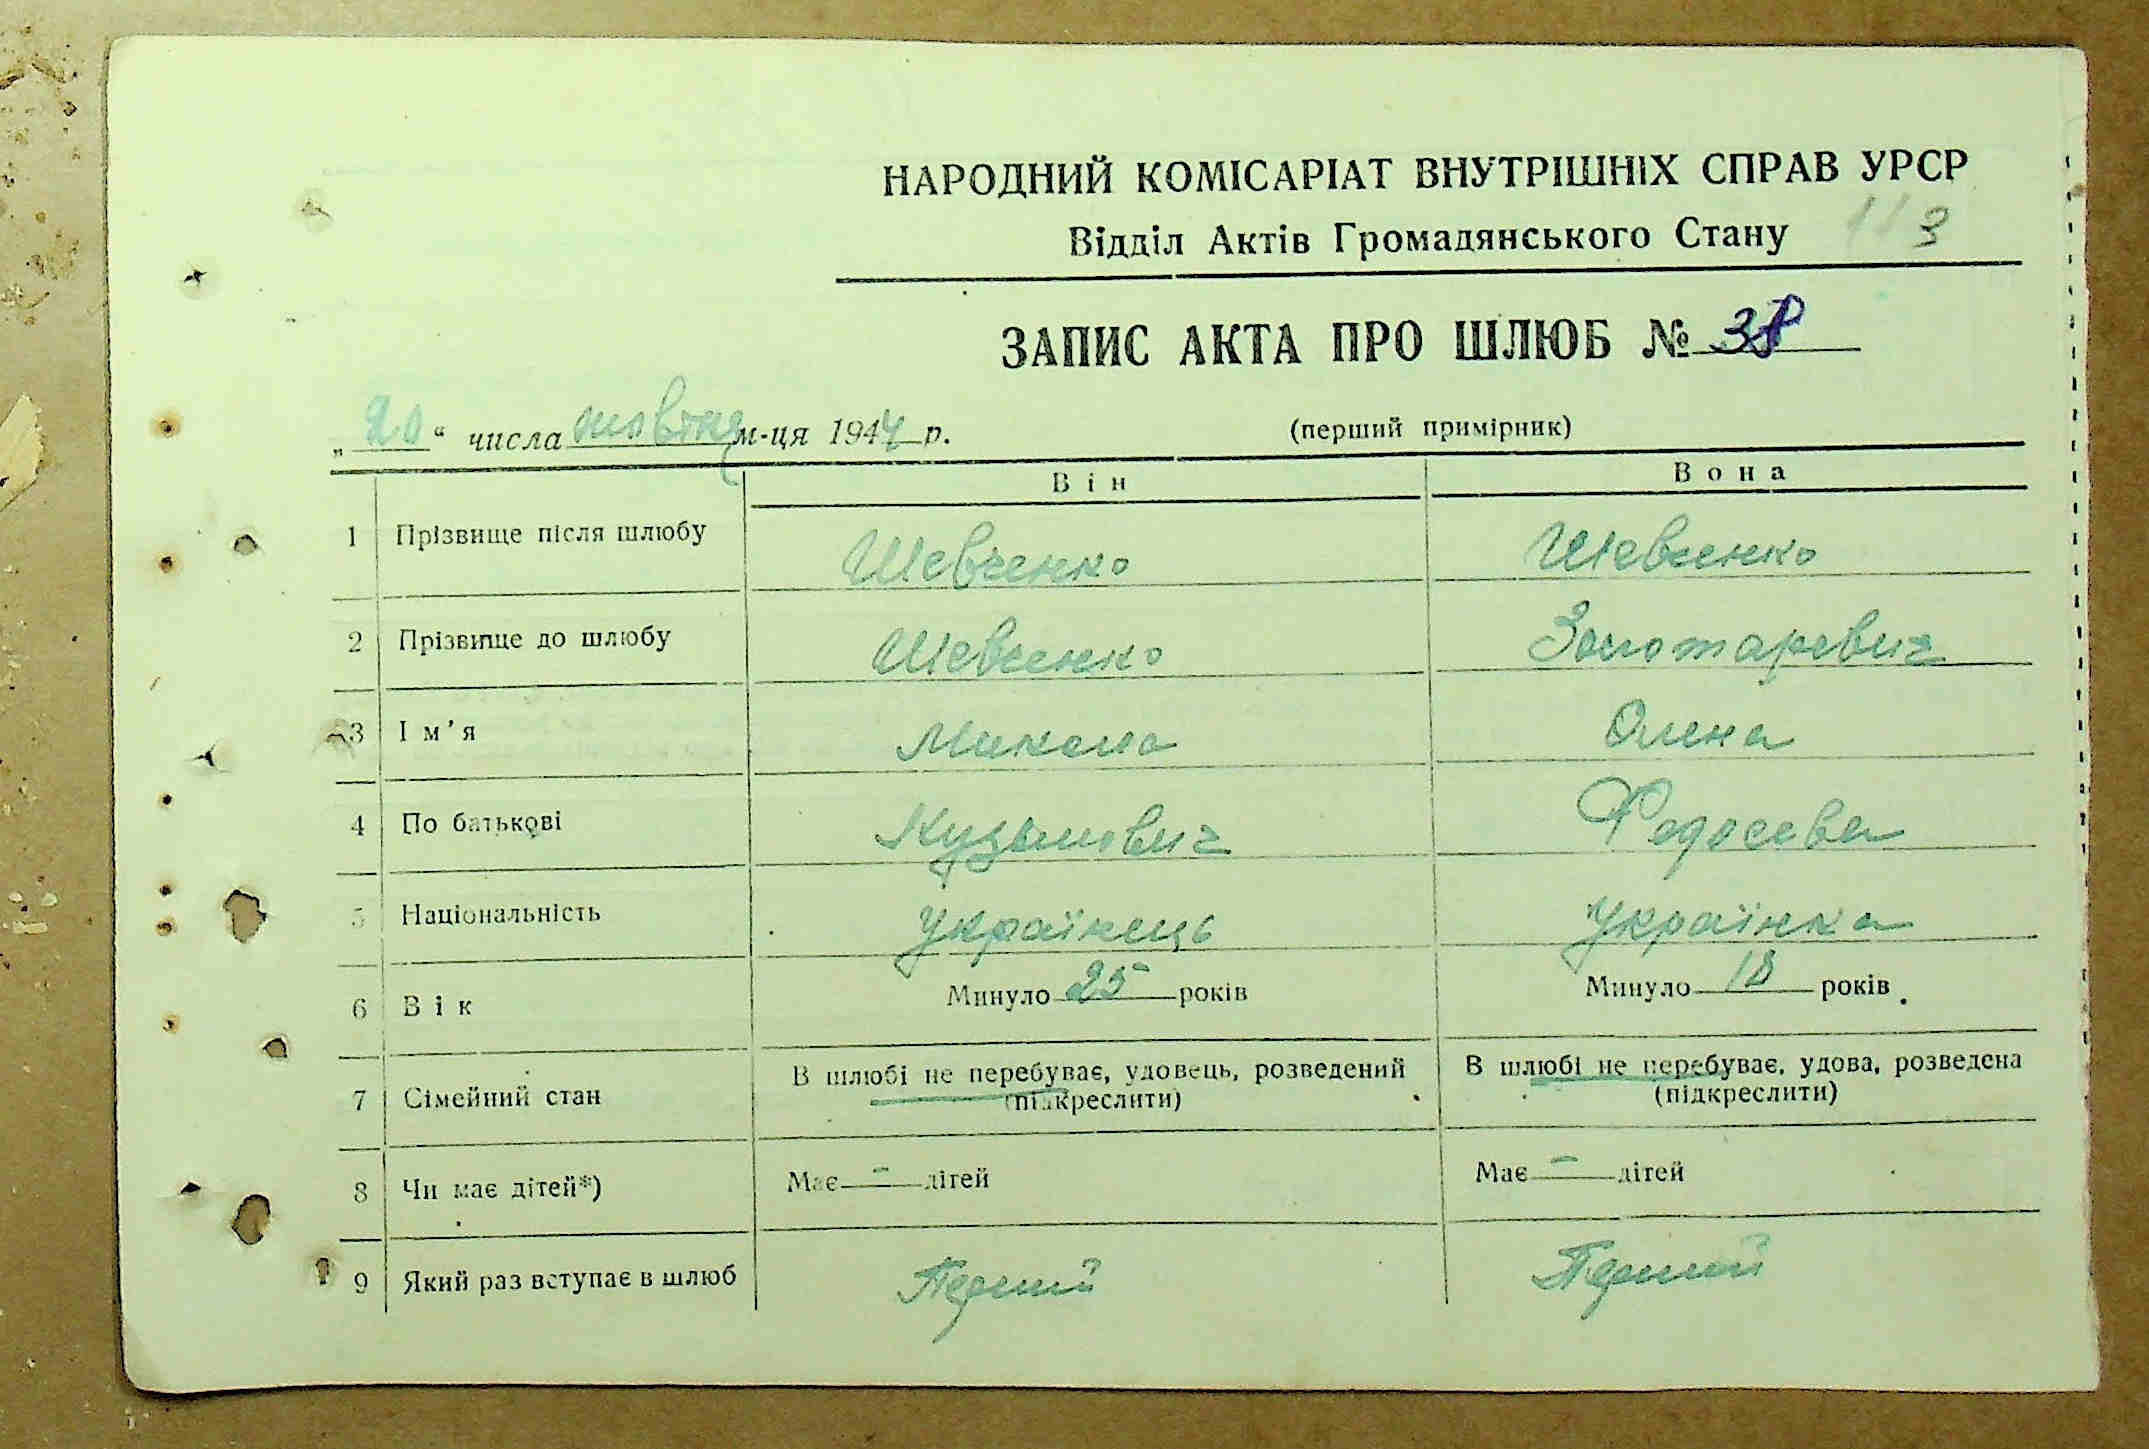 НАРОДНИЙ КОМІСАРІАТ ВНУТРІШНІХ СПРАВ УРСР
Відділ Актів Громадянського Стану 113
ЗАПИС АКТА ПРО ШЛЮБ №
„20“ числа жовтня м-ця 1944 р. (перший примірник)
Він Вона
1 Прізвище після шлюбу Шевченко Шевченко
2 Прізвище до шлюбу Шевченко Золотаревич
3 Ім’я Микола Олена
4 По батькові Кузьмович Федосеевна
5 Національність Українець Українка
6 Вік Минуло 25 років Минуло 18 років
7 Сімейний стан В шлюбі не перебуває, удовець, розведений В шлюбі не перебуває, удова, розведена
(підкреслити) (підкреслити)
8 Чи має дітей*) Має — дітей Має — дітей
9 Який раз вступає в шлюб Перший Перший